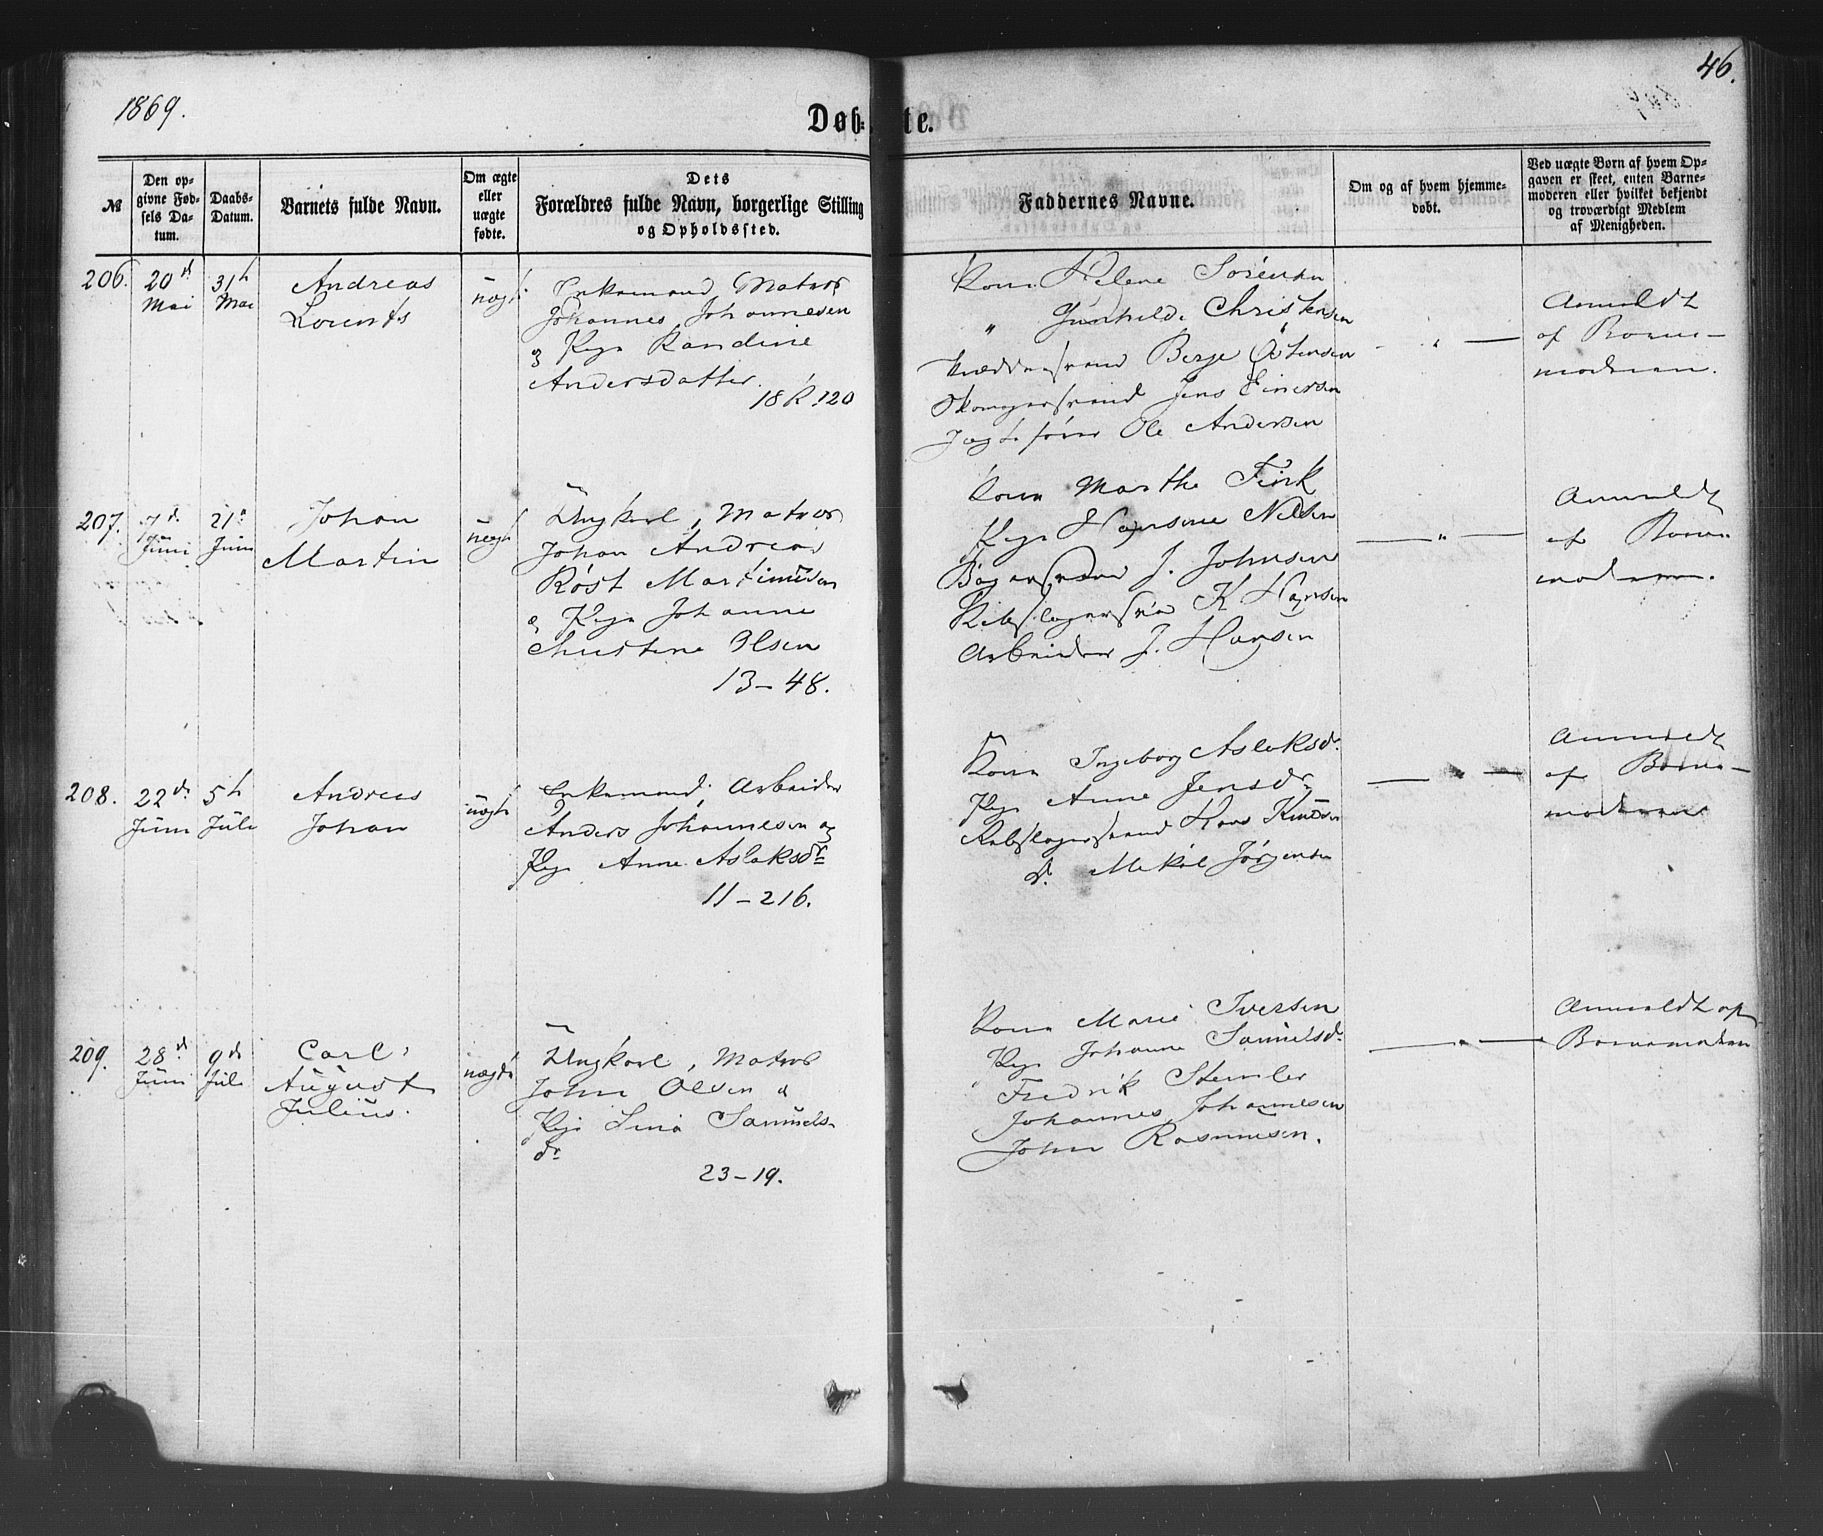 1869.
46.
Døb- te.
№
Den op-
givne Fød-
sels Da-
tum.
Daabs-
Datum.
Barnets fulde Navn.
Om ægte
eller
uægte
fødte.
Dets
Forældres fulde Navn, borgerlige Stilling
og Opholdssted.
Faddernes Navne.
Om og af hvem hjemme-
døbt.
Ved uægte Børn af hvem Op-
gaven er skeet, enten Barne-
moderen eller hvilket bekjendt
og troværdigt Medlem
af Menigheden.
206.
20de
Mai
31te
Mai
Andreas
Lorents
uægte
Enkemand, Matros
Johannes Johannesen
og Pige Randine
Andersdatter.
18 R. 120
Kone Helene Sörensen
" Gunhilde Christensen
Berge Östensen
Jens Einersen
Jagtefører Ole Andersen
"
Anmeldt
af Barne-
moderen.
207.
7de
Juni
21de
Juni
Johan
Martin
uægte
Ungkarl, Matros
Johan Andreas
Röst Martinusen
og Pige Johanne
Christine Olsen
13-48.
Kone Marthe Fink
Pige Hansine Nilsen
Bøgersvend J. Johnsen
Rebslagersvend K Hansen
Arbeider J. Hansen
"
Anmeldt
af Barne
moderen.
208.
22de
Juni
5te
Juli
Andreas
Johan
uægte
Enkemand. Arbeider
Anders Johannesen og
Pige Anne Aslaksdr
11-216.
Kone Ingeborg Aslaksdr.
Pige Anne Jensdr
Rebslagersvend Hans Knudsen
d. Mekal Jørgensen
"
Anmeldt
af Barne-
moderen
209.
28de
Juni
9de
Juli
Carl
August
Julius.
uægte
Ungkarl, Matros
John Olsen og
Pige Lina Samuels-
dr
23-19.
Kone Marie Iversen
Pige Johanne Samuelsdr.
Fredrik Stemler
Johannes Johannesen
John Rasmusen.
"
Anmeldt af
Barnemoderen